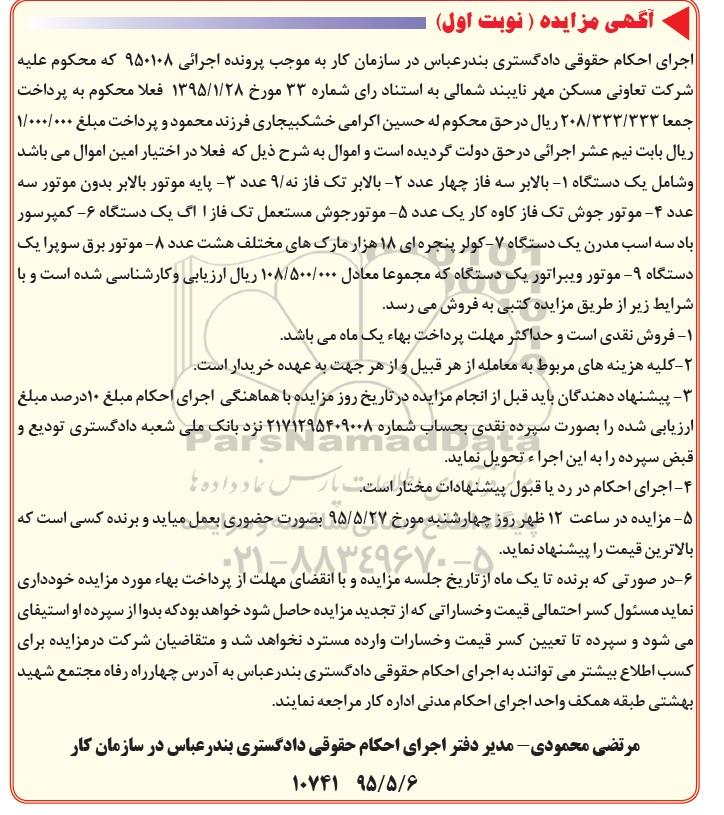 آگهی مزایده ( نوبت اول)
اجرای احکام حقوقی دادگستری بندرعباس در سازمان کار به موجب پرونده اجرائی ۹۵۰۱۰۸ که محکوم علیه
شرکت تعاونی مسکن مهر نایبند شمالی به استناد رای شماره ۳۳ مورخ ۱۳۹۵/۱/۲۸ فعلا محکوم به پرداخت
جمعا ۲۰۸/۳۳۳/۳۳۳ ریال درحق محکوم له حسین اکرامی خشکبیجاری فرزند محمود و پرداخت مبلغ ۱/۰۰۰/۰۰۰
ریال بابت نیم عشر اجرائی درحق دولت گردیده است و اموال به شرح ذیل که فعلا در اختیار امین اموال می باشد
وشامل یک دستگاه ۱- بالابر سه فاز چهار عدد ۲- بالابر تک فاز نه/۹ عدد ۳- پایه موتور بالابر بدون موتور سه
عدد ۴- موتور جوش تک فاز کاوه کار یک عدد ۵- موتورجوش مستعمل تک فاز ا اگ یک دستگاه ۶- کمپرسور
باد سه اسب مدرن یک دستگاه ۷-کولر پنجره ای ۱۸ هزار مارک های مختلف هشت عدد ۸- موتور برق سوپرا یک
دستگاه ۹- موتور ویبراتور یک دستگاه که مجموعا معادل ۱۰۸/۵۰۰/۰۰۰ ریال ارزیابی وکارشناسی شده است و با
شرایط زیر از طریق مزایده کتبی به فروش می رسد.
۱- فروش نقدی است و حداکثر مهلت پرداخت بهاء یک ماه می باشد.
۲-کلیه هزینه های مربوط به معامله از هر قبیل و از هر جهت به عهده خریدار است.
۳- پیشنهاد دهندگان باید قبل از انجام مزایده درتاریخ روز مزایده با هماهنگی اجرای احکام مبلغ ۱۰درصد مبلغ
ارزیابی شده را بصورت سپرده نقدی بحساب شماره ۲۱۷۱۲۹۵۴۰۹۰۰۸ نزد بانک ملی شعبه دادگستری تودیع و
قبض سپرده را به این اجرا ء تحویل نماید.
۴- اجرای احکام در رد یا قبول پیشنهادات مختار است.
۵- مزایده در ساعت ۱۲ ظهر روز چهارشنبه مورخ ۹۵/۵/۲۷ بصورت حضوری بعمل میاید و برنده کسی است که
بالاترین قیمت را پیشنهاد نماید.
۶-در صورتی که برنده تا یک ماه ازتاریخ جلسه مزایده و با انقضای مهلت از پرداخت بهاء مورد مزایده خودداری
نماید مسئول کسر احتمالی قیمت وخساراتی که از تجدید مزایده حاصل شود خواهد بودکه بدوا از سپرده او استیفای
می شود و سپرده تا تعیین کسر قیمت وخسارات وارده مسترد نخواهد شد و متقاضیان شرکت درمزایده برای
کسب اطلاع بیشتر می توانند به اجرای احکام حقوقی دادگستری بندرعباس به آدرس چهارراه رفاه مجتمع شهید
بهشتی طبقه همکف واحد اجرای احکام مدنی اداره کار مراجعه نمایند.
مرتضی محمودی- مدیر دفتر اجرای احکام حقوقی دادگستری بندرعباس در سازمان کار
۹۵/۵/۶ ۱۰۷۴۱
ParsNamadData
۰۲۱-۸۸۳۴۹۶۷۰-۵